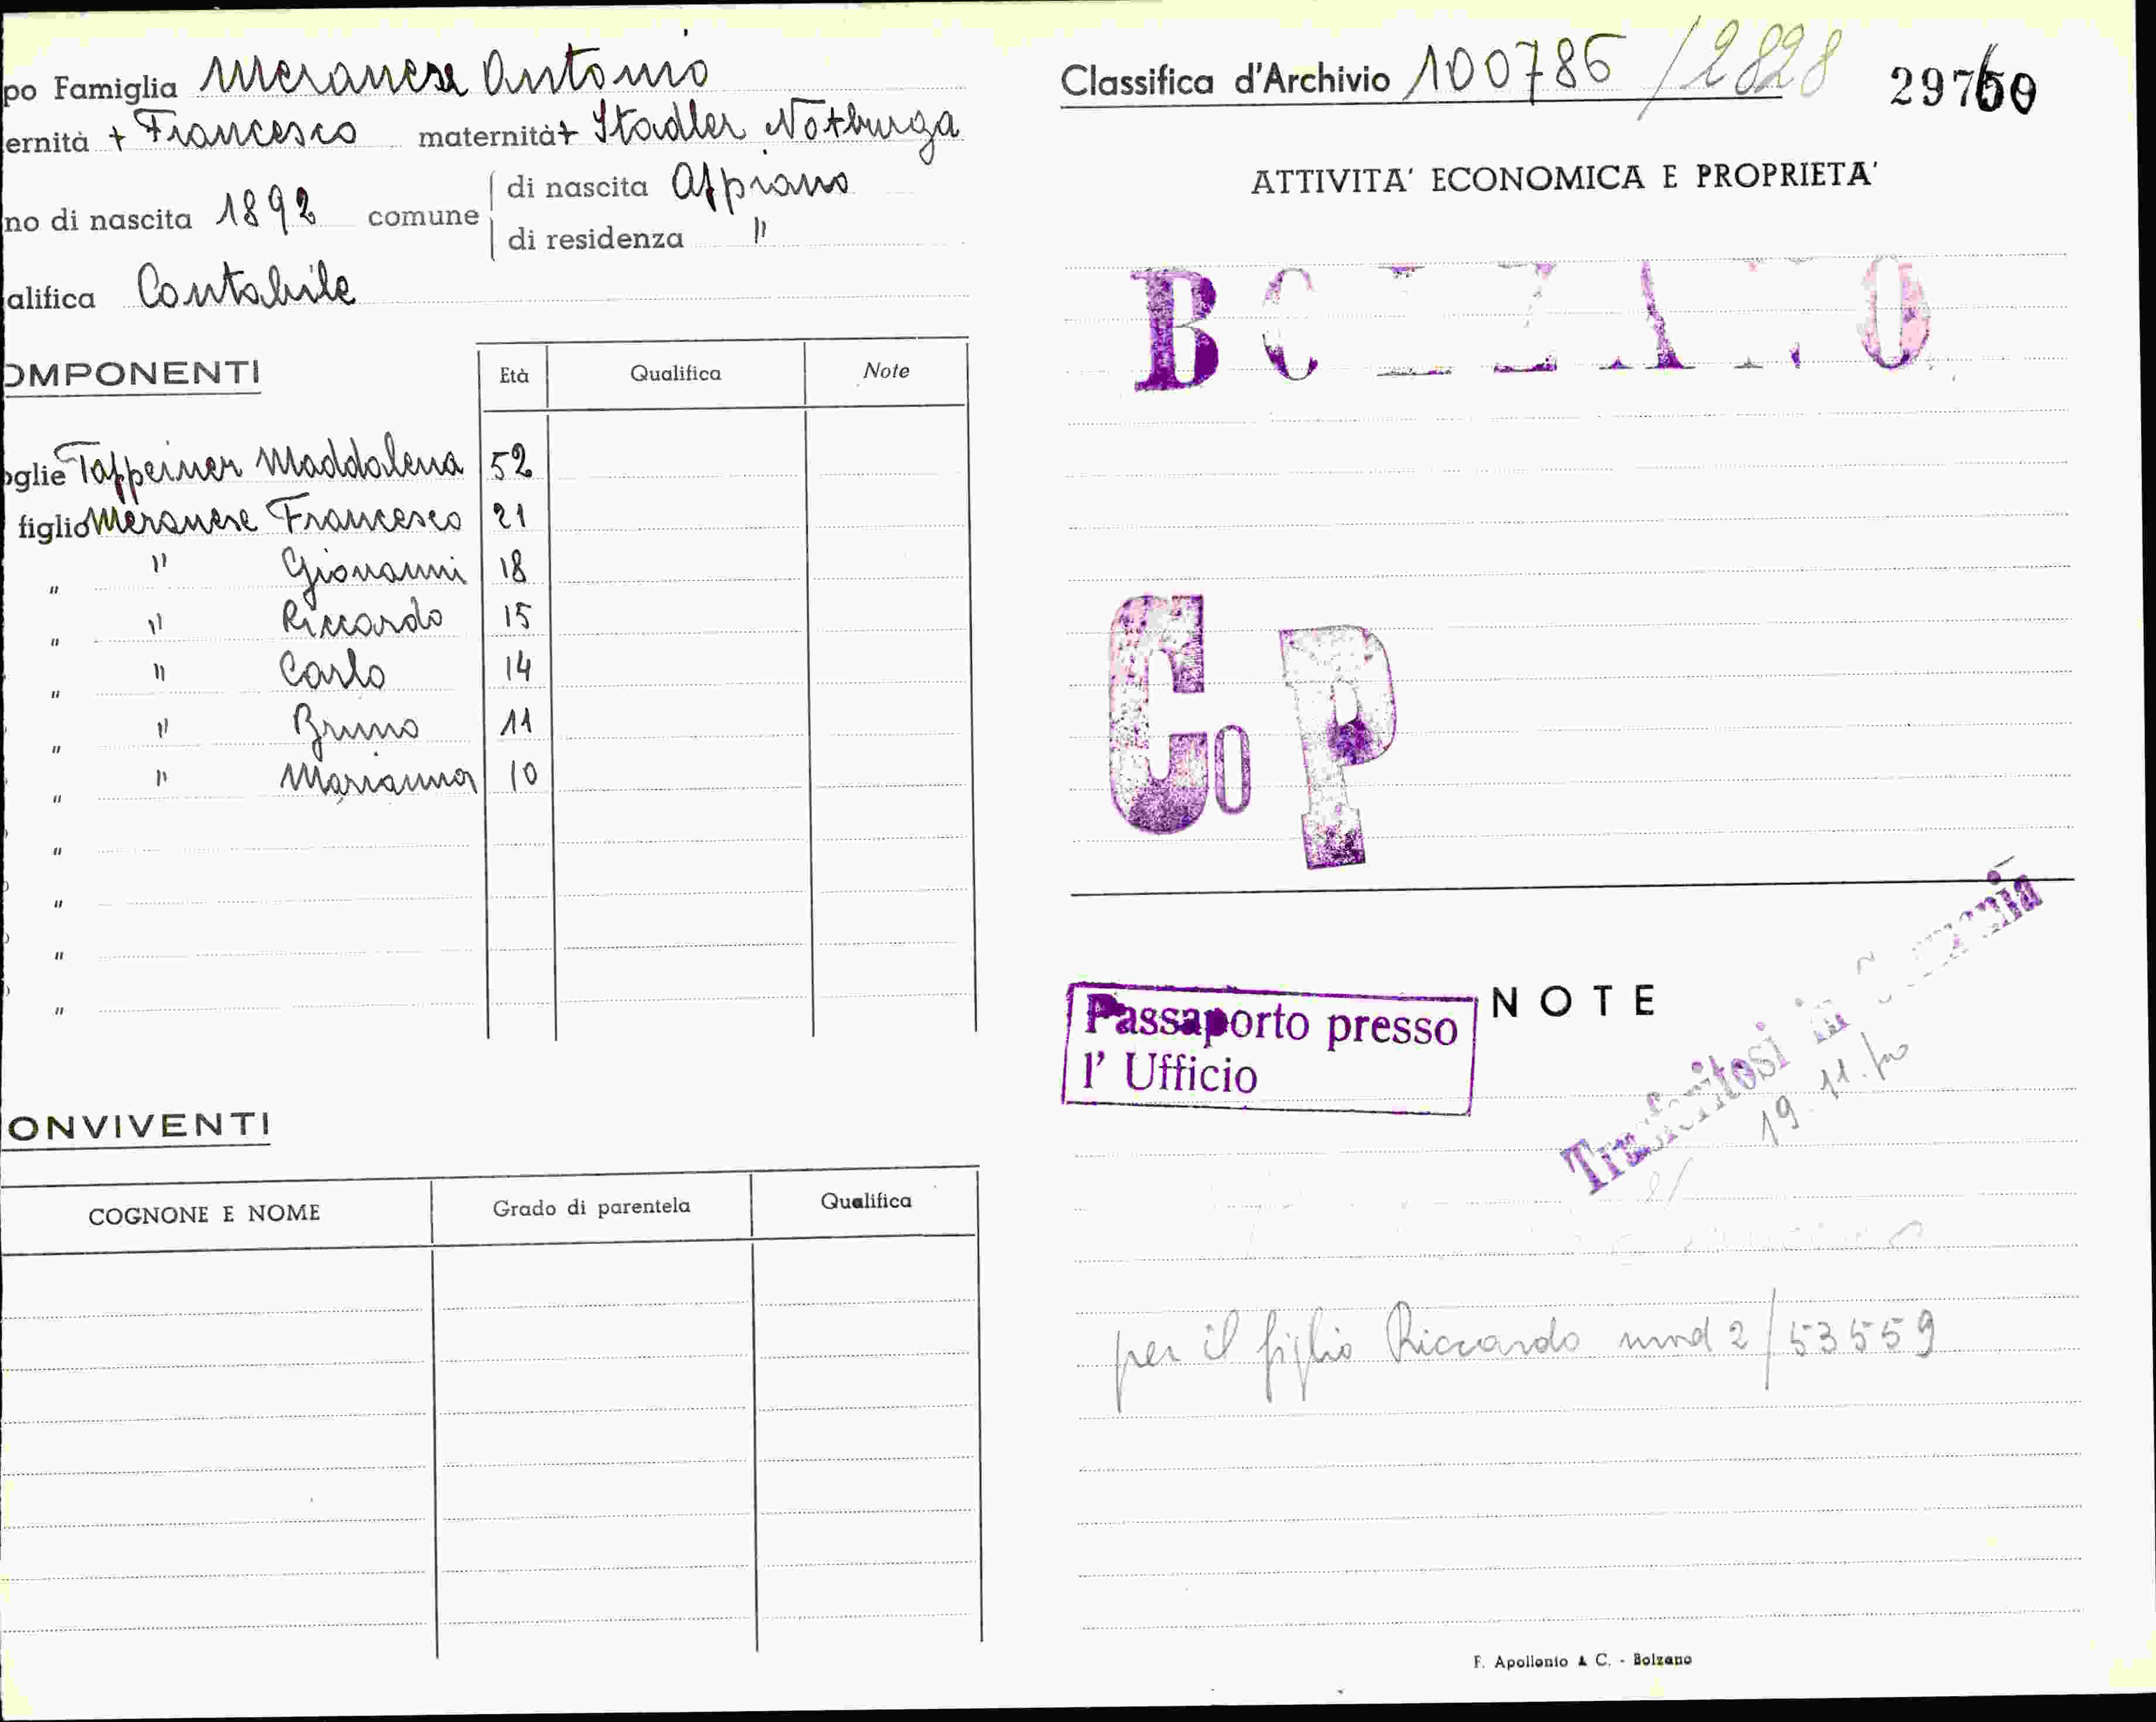 po Famiglia Meranese Antonio
ernità + Francesco maternità + Stadler Notburga
no di nascita 1892 comune di nascita Appiano
di residenza "
alifica Contabile
OMPONENTI Età Qualifica Note
oglie Tappeiner Maddalena 52
figlio Meranese Francesco 21
" " Giovanni 18
" " Riccardo 15
" " Carlo 14
" " Bruno 11
" " Marianna 10
"
"
"
"
ONVIVENTI
COGNONE E NOME Grado di parentela Qualifica
Classifica d'Archivio 100786 /2828 29760
ATTIVITA' ECONOMICA E PROPRIETA'
BOLZANO
Co P
NOTE
Passaporto presso
l' Ufficio
Trasferitosi in Germania
19.11.
per il figlio Riccardo mod 2/53559
F. Apollonio & C. - Bolzano